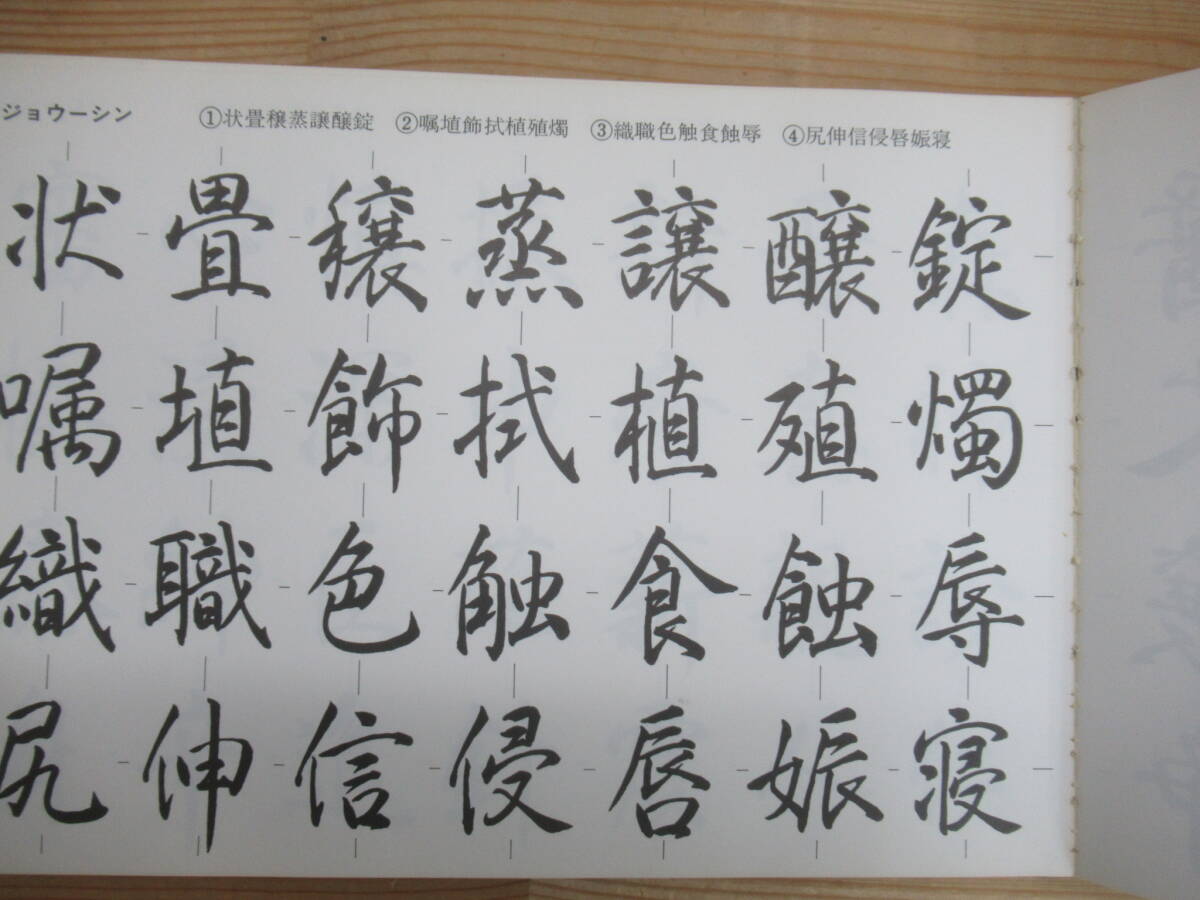 ジョウーシン ①状畳穣蒸譲醸錠 ②嘱埴飾拭植殖燭 ③織職色触食蝕辱 ④尻伸信侵唇娠寝
状畳穣蒸譲醸錠
嘱埴飾拭植殖燭
織職色触食蝕辱
尻伸信侵唇娠寝